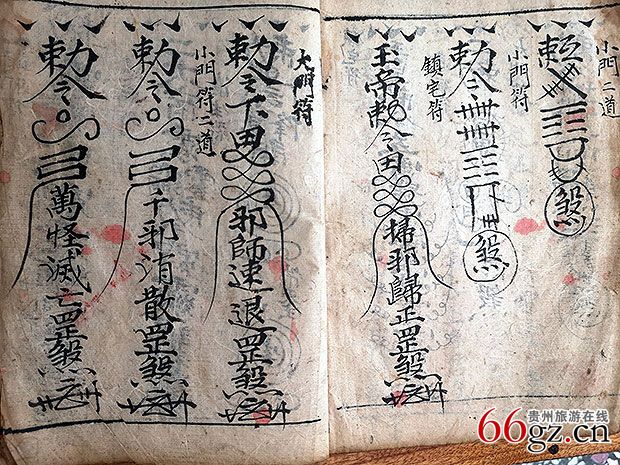 小門二道
勅令 煞
小門符
勅令 煞
鎮宅符
玉帝勅令田 掃邪歸正罡煞
大門符
勅令下田 邪師速退罡煞
小門符二道
勅令 千邪消散罡煞
勅令 萬怪滅亡罡煞
贵州旅游在线
66gz.cn